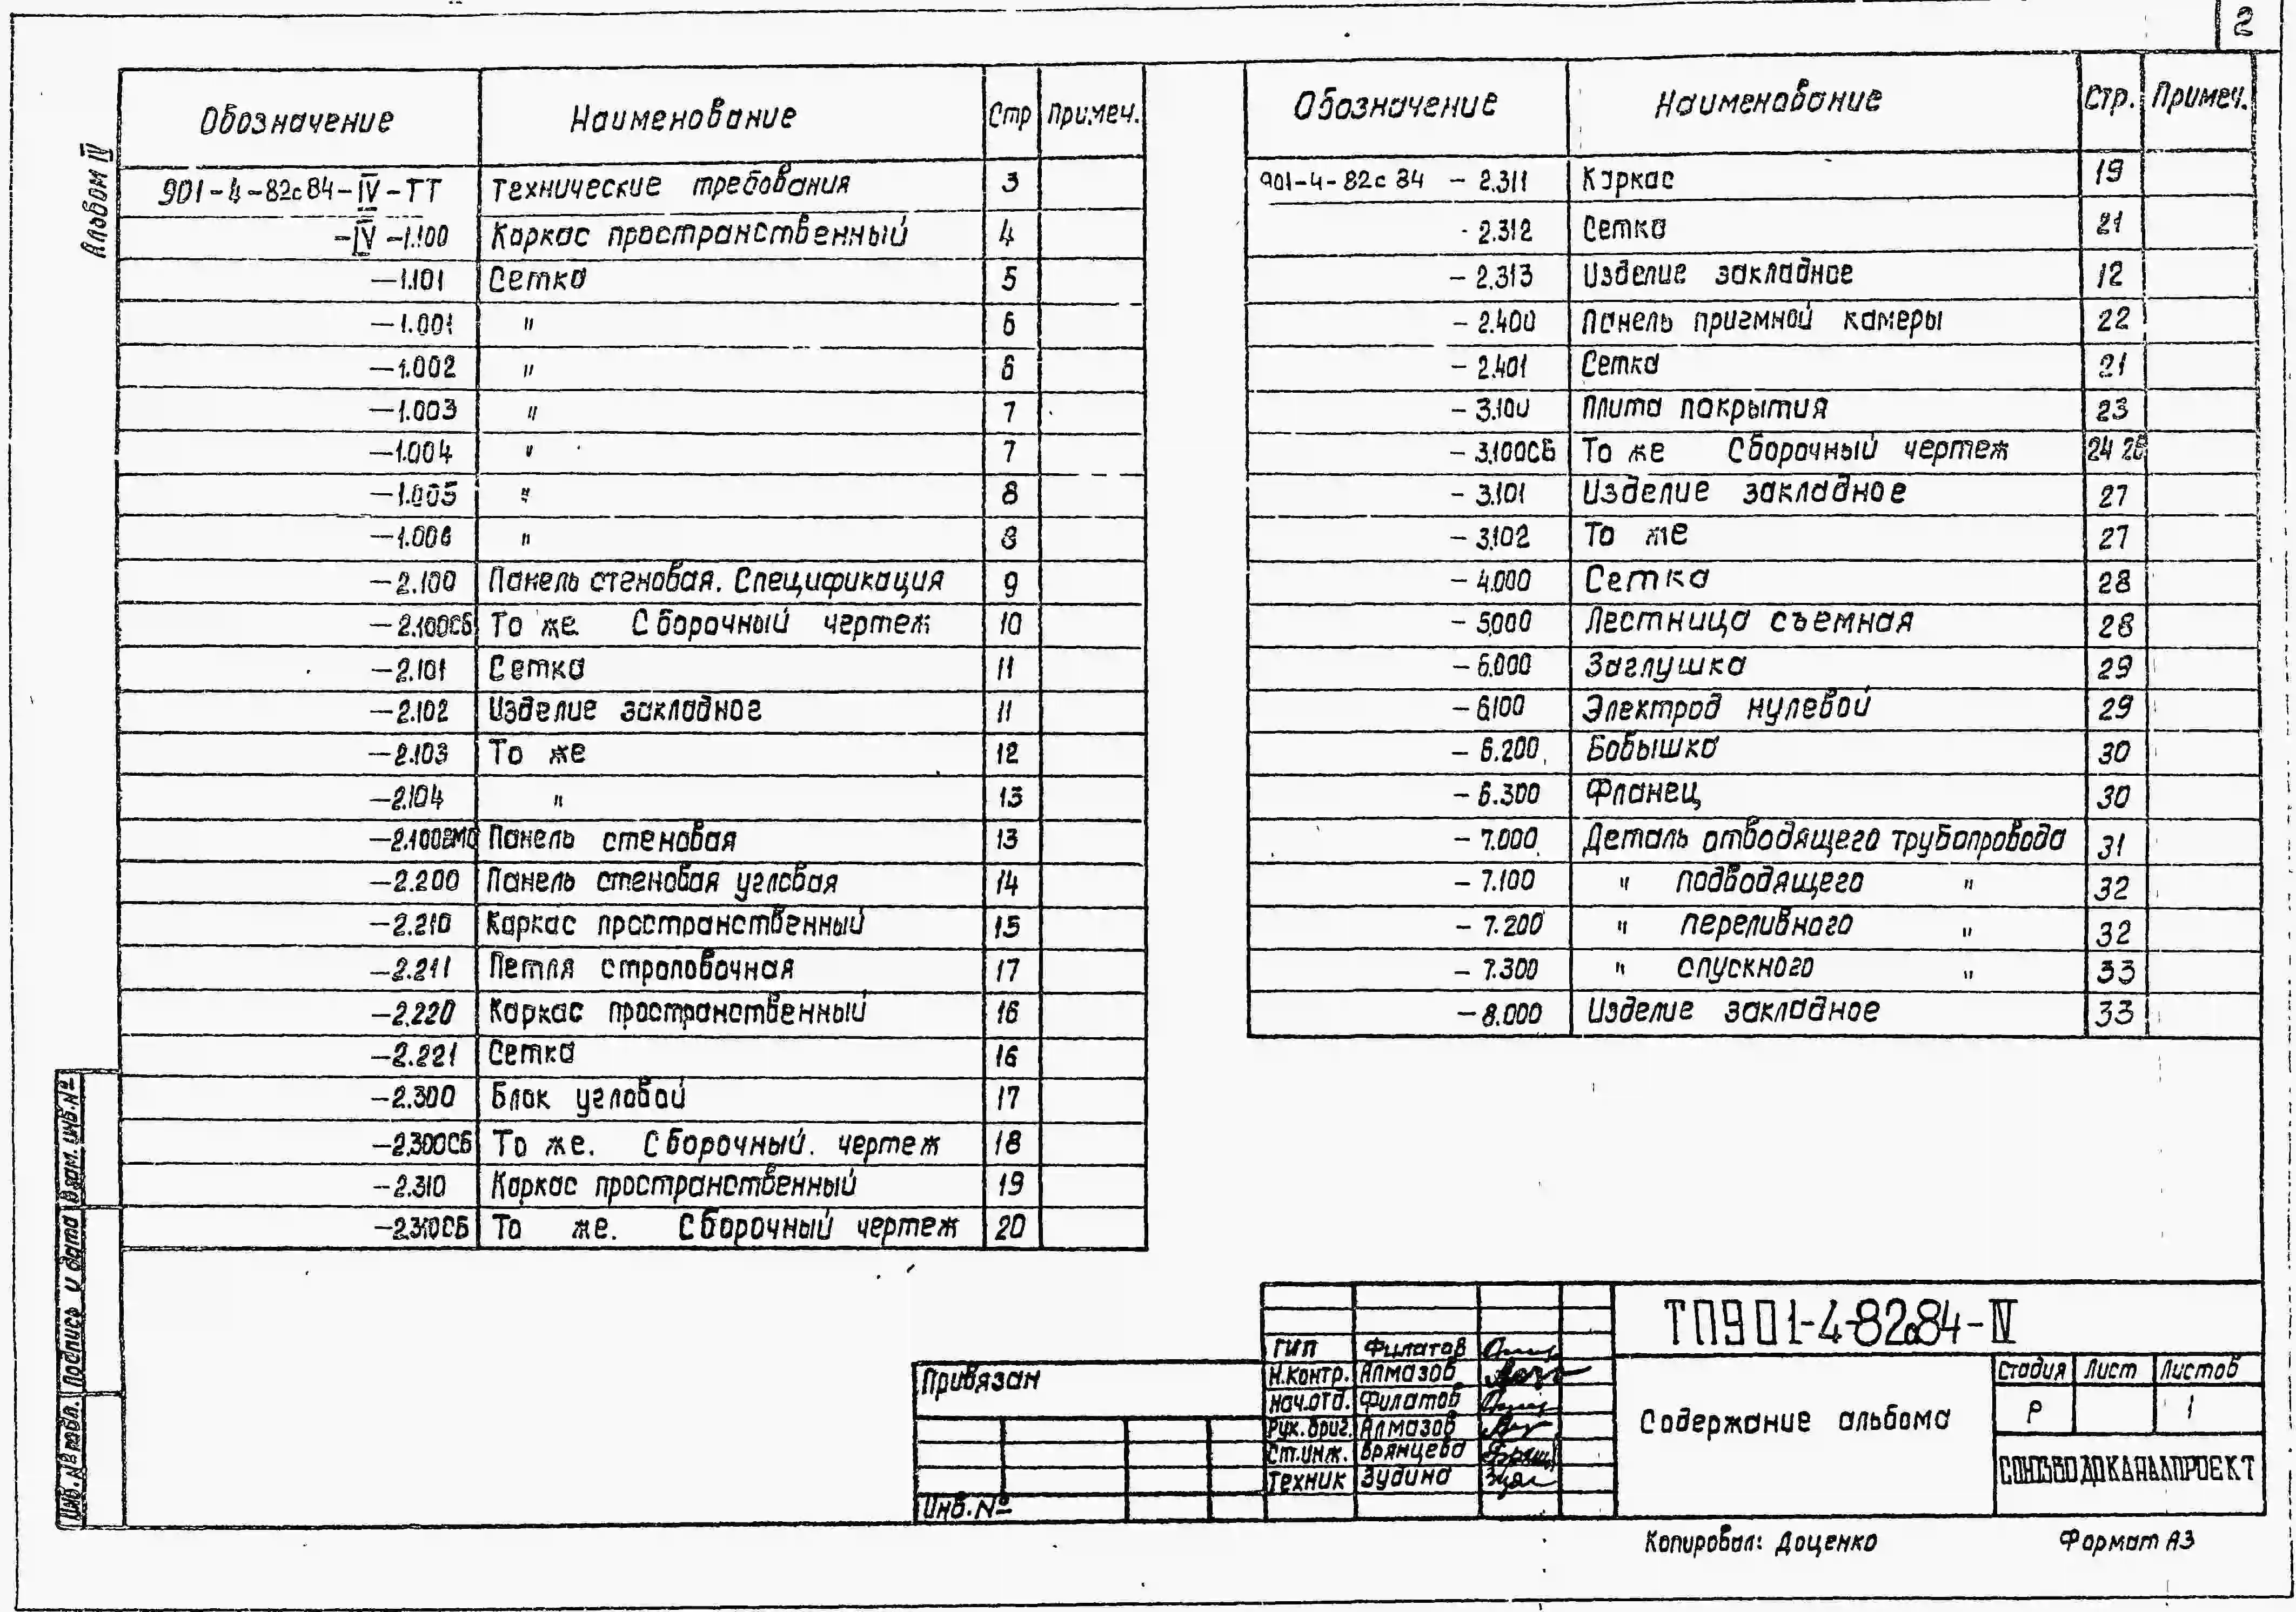 2
Альбом IV
Обозначение Наименование Стр Примеч.
901-4-82с84-IV-ТТ Технические требования 3
-IV-1.100 Каркас пространственный 4
-1.101 Сетка 5
-1.001 " 6
-1.002 " 6
-1.003 " 7
-1.004 " 7
-1.005 " 8
-1.006 " 8
-2.100 Панель стеновая. Спецификация 9
-2.100СБ То же Сборочный чертеж 10
-2.101 Сетка 11
-2.102 Изделие закладное 11
-2.103 То же 12
-2.104 " 13
Панель стеновая 13
-2.200 Панель стеновая угловая 14
-2.210 Каркас пространственный 15
-2.211 Петля строповочная 17
-2.220 Каркас пространственный 16
-2.221 Сетка 16
-2.300 Блок угловой 17
-2.300СБ То же. Сборочный. чертеж 18
-2.310 Каркас пространственный 19
-2.310СБ То же. Сборочный чертеж 20
Обозначение Наименование Стр. Примеч.
901-4-82с84 - 2.311 Каркас 19
- 2.312 Сетка 21
- 2.313 Изделие закладное 12
- 2.400 Панель приемной камеры 22
- 2.401 Сетка 21
- 3.100 Плита покрытия 23
- 3.100СБ То же Сборочный чертеж 24
- 3.101 Изделие закладное 27
- 3.102 То же 27
- 4.000 Сетка 28
- 5.000 Лестница съемная 28
- 6.000 Заглушка 29
- 6.100 Электрод нулевой 29
- 6.200 Бобышка 30
- 6.300 Фланец 30
- 7.000 Деталь отводящего трубопровода 31
- 7.100 " подводящего " 32
- 7.200 " переливного " 32
- 7.300 " спускного " 33
- 8.000 Изделие закладное 33
Взам. инв. №
Подпись и дата
Инв. № подл.
Привязан
Инв. №
ГИП Филатов
Н.контр. Алмазов
Нач.отд. Филатов
Рук.бриг. Алмазов
Ст.инж. Брянцева
Техник Зудина
ТП901-4-82с84-IV
Содержание альбома
Стадия Лист Листов
Р 1
СОЮЗВОДОКАНАЛПРОЕКТ
Копировал: Доценко Формат А3